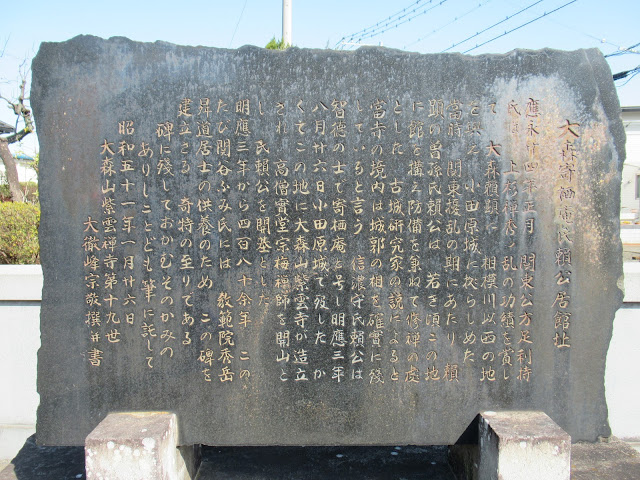 大森寄栖庵氏頼公居館址
應永廿四年正月 関東公方足利持
氏は 上杉禅秀の乱の功績を賞し
て 大森頼顕に 相模川以西の地
を與え 小田原城に拠らしめた
當時 関東擾乱の期にあたり 頼
顕の曽孫氏頼公は 若き頃この地
に館を構え防備を兼ねて修禅の處
とした 古城研究家の説によると
當寺の境内は城郭の相を確實に残
していると言う 信濃守氏頼公は
智徳の士で寄栖庵と号し明應三年
八月廿六日小田原城で歿したか
くてこの地に大森山紫雲寺が造立
され 高僧實堂宗梅禅師を開山と
し 氏頼公を開基とした
明應三年から四百八十余年 この
たび関谷ふみ氏には 敎範院秀岳
昇道居士の供養のため この碑を
建立さる 奇特の至りである
碑に残しておかむそのかみの
ありしことども筆に託して
昭和五十一年一月廿六日
大森山紫雲禅寺第十九世
大徹峰宗敬撰并書